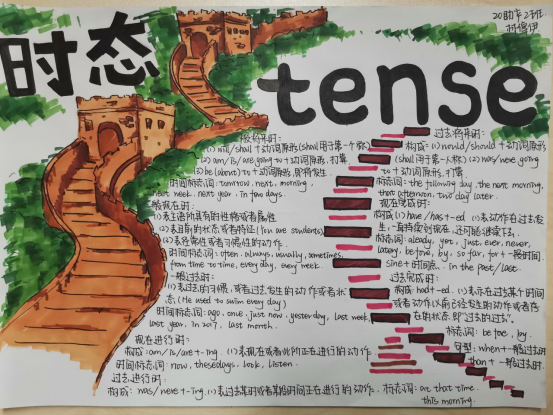 时态
tense
20助产2班
一般将来时：
(1) will/shall + 动词原形 (shall用于第一个称)
(2) am/is/are going to + 动词原形，打算
(3) be (about) to + 动词原形，即将发生
时间标志词：tomrrow, next, morning,
next week, next year, in few days.
一般现在时：
(1) 表主语所具有的性格或者属性
(2) 表目前的状态或者特征 (You are students)
(3) 表经常性或者习惯性的动作.
时间标志词：often, always, usually, sometimes,
from time to time, every day, every week
一般过去时：
(1) 表过去的习惯，或者过去发生的动作或者状
态 (He used to swim every day)
时间标志词：ago, one, just now, yesterday, last week,
last year, in 2017, last month.
现在进行时：
构成：am/is/are + -ing, (1) 表现在或者此时正在进行的动作
时间标志词：now, thesedays, look, listen.
过去进行时：
构成：was/were + -ing, (1) 表过去某时或者某段时间正在进行的动作. 标志词：at that time,
this morning.
过去将来时：
构成：(1) would/should + 动词原形
(shall用于第一人称) (2) was/were going
to + 动词原形，打算
标志词：the following day, the next morning,
that afternoon, two day later.
现在完成时：
构成 (1) have/has + -ed, (1) 表动作在过去发
生，一直持续到现在，还可能继续下去.
标志词：already, yet, just, ever, never,
lately, before, by, so far, for + 一段时间.
sine + 时间点. in the past/last.
过去完成时：
构成：had + -ed. (1) 表示在过去某个时间
或者动作以前已经发生的动作或者存
在的状态，即"过去的过去".
标志词：before, by.
句型：when + 一般过去时
than + 一般过去时.